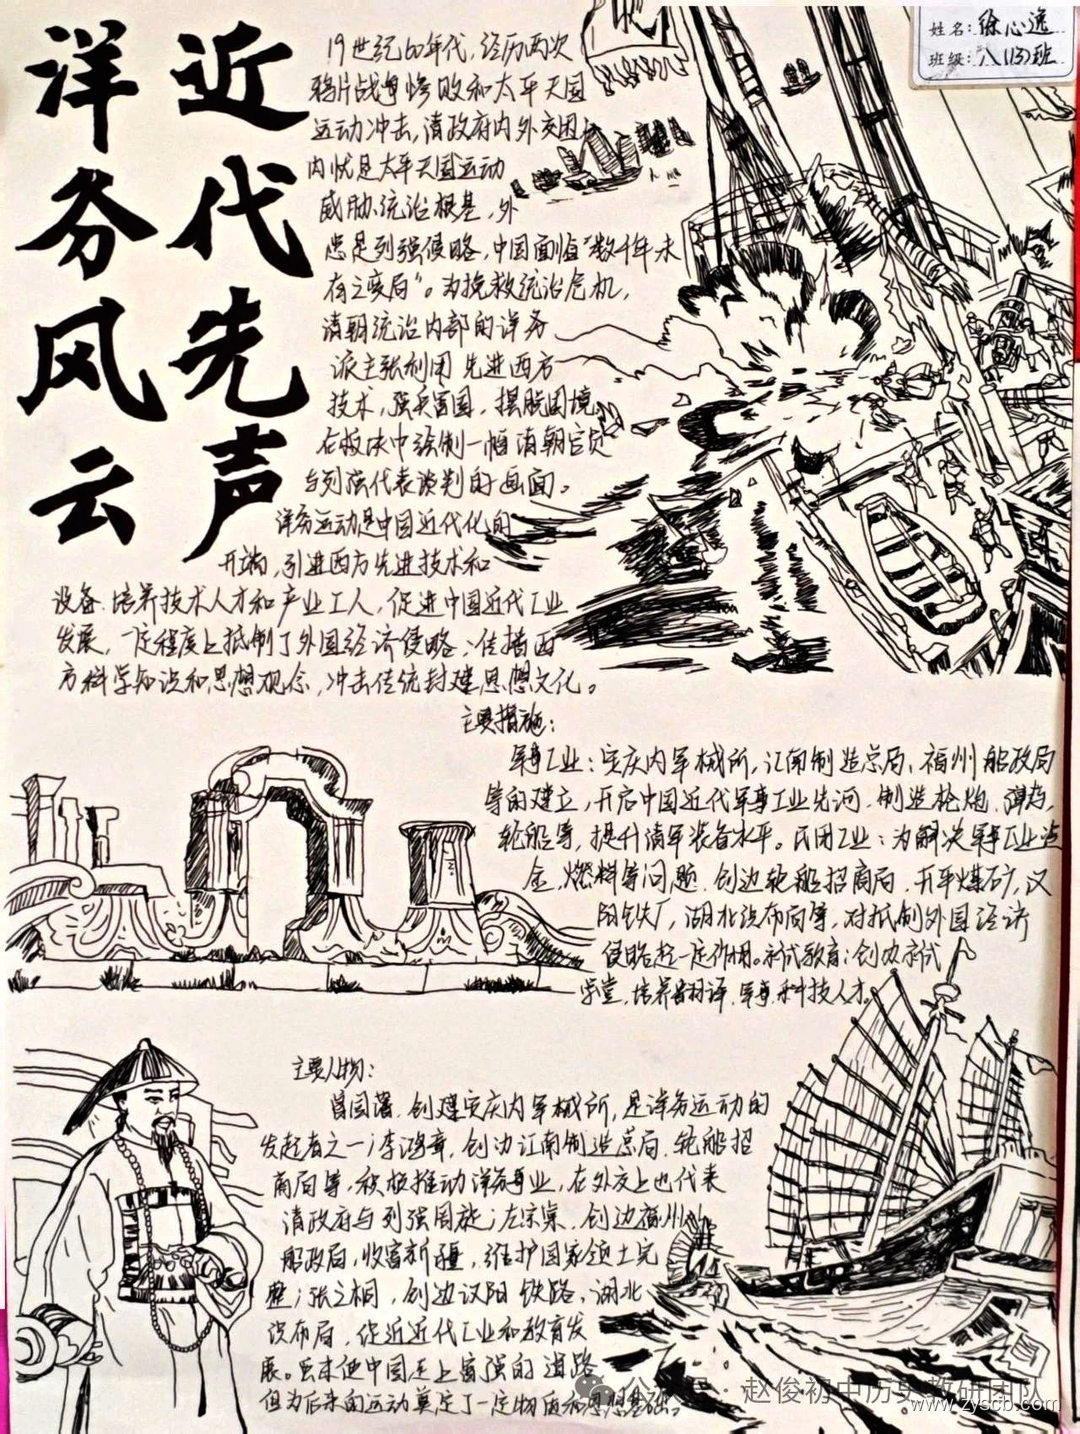 近代先声
洋务风云
姓名：徐心逸
班级：八(13)班
19世纪60年代，经历两次
鸦片战争惨败和太平天国
运动冲击，清政府内外交困，
内忧是太平天国运动
威胁统治根基，外
患是列强侵略，中国面临"数千年未
有之变局"。为挽救统治危机，
清朝统治内部的洋务
派主张利用先进西方
技术，强兵富国，摆脱困境，
在板块中绘制一幅清朝官员
与列强代表谈判的画面。
洋务运动是中国近代化的
开端，引进西方先进技术和
设备、培养技术人才和产业工人，促进中国近代工业
发展，一定程度上抵制了外国经济侵略；传播西
方科学知识和思想观念，冲击传统封建思想文化。
主要措施：
军事工业：安庆内军械所，江南制造总局、福州船政局
等的建立，开启中国近代军事工业先河，制造枪炮、弹药、
轮船等，提升清军装备水平。民用工业：为解决军事工业资
金、燃料等问题，创办轮船招商局、开平煤矿，汉
阳铁厂，湖北织布局等，对抵制外国经济
侵略起一定作用。新式教育：创办新式
学堂，培养翻译、军事、科技人才。
主要人物：
曾国藩，创建安庆内军械所，是洋务运动的
发起者之一；李鸿章，创办江南制造总局、轮船招
商局等，积极推动洋务事业，在外交上也代表
清政府与列强周旋；左宗棠，创办福州
船政局，收复新疆，维护国家领土完
整；张之桐，创办汉阳铁路，湖北
织布局，促近近代工业和教育发
展。虽未使中国走上富强的道路
但为后来的运动奠定了一定物质和思想基础。
公众号·赵俊初中历史教研团队
www.zyscb.com